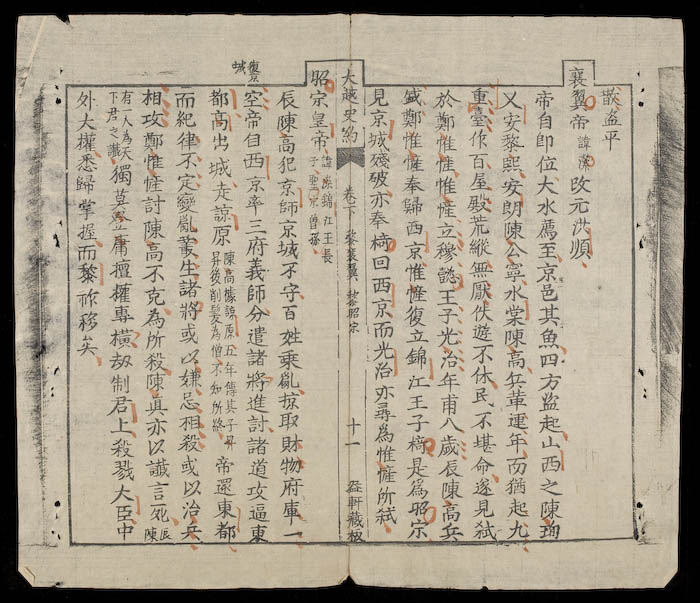 散盜平
襄翼帝 諱瀠 改元洪順
帝自即位大水薦至京邑其魚四方盜起山西之陳珣
又安黎熙安朗陳公寧水棠陳高兵革連年而猶起九
重臺作百屋殿荒縱無厭佚遊不休民不堪命遂見弒
於鄭惟㦃惟㦃立穆懿王子光治年甫八歲辰陳高兵
盛鄭惟㦃奉歸西京惟㦃復立錦江王子椅是爲昭宗
見京城殘破亦奉椅回西京而光治亦尋為惟㦃所弒
大越史約
卷下 黎襄翼 黎昭宗
十一
益軒藏板
昭宗皇帝 諱 錦江王長子聖宗曾孫
辰陳高犯京師京城不守百姓乘亂掠取財物府庫一
空帝自西京率三府義師分遣諸將進討諸道攻逼東
都高出城走諒原 陳高據諒原五年傳其子昇昇後削髮為僧不知所終 帝還東都
而紀律不定變亂叢生諸將或以嫌忌相殺或以治兵
相攻鄭惟㦃討陳高不克為所殺陳真亦以讖言死 辰陳
有一人為天下君之讖 獨莫登庸擅權專橫劫制君上殺戮大臣中
外大權悉歸掌握而黎祚移矣